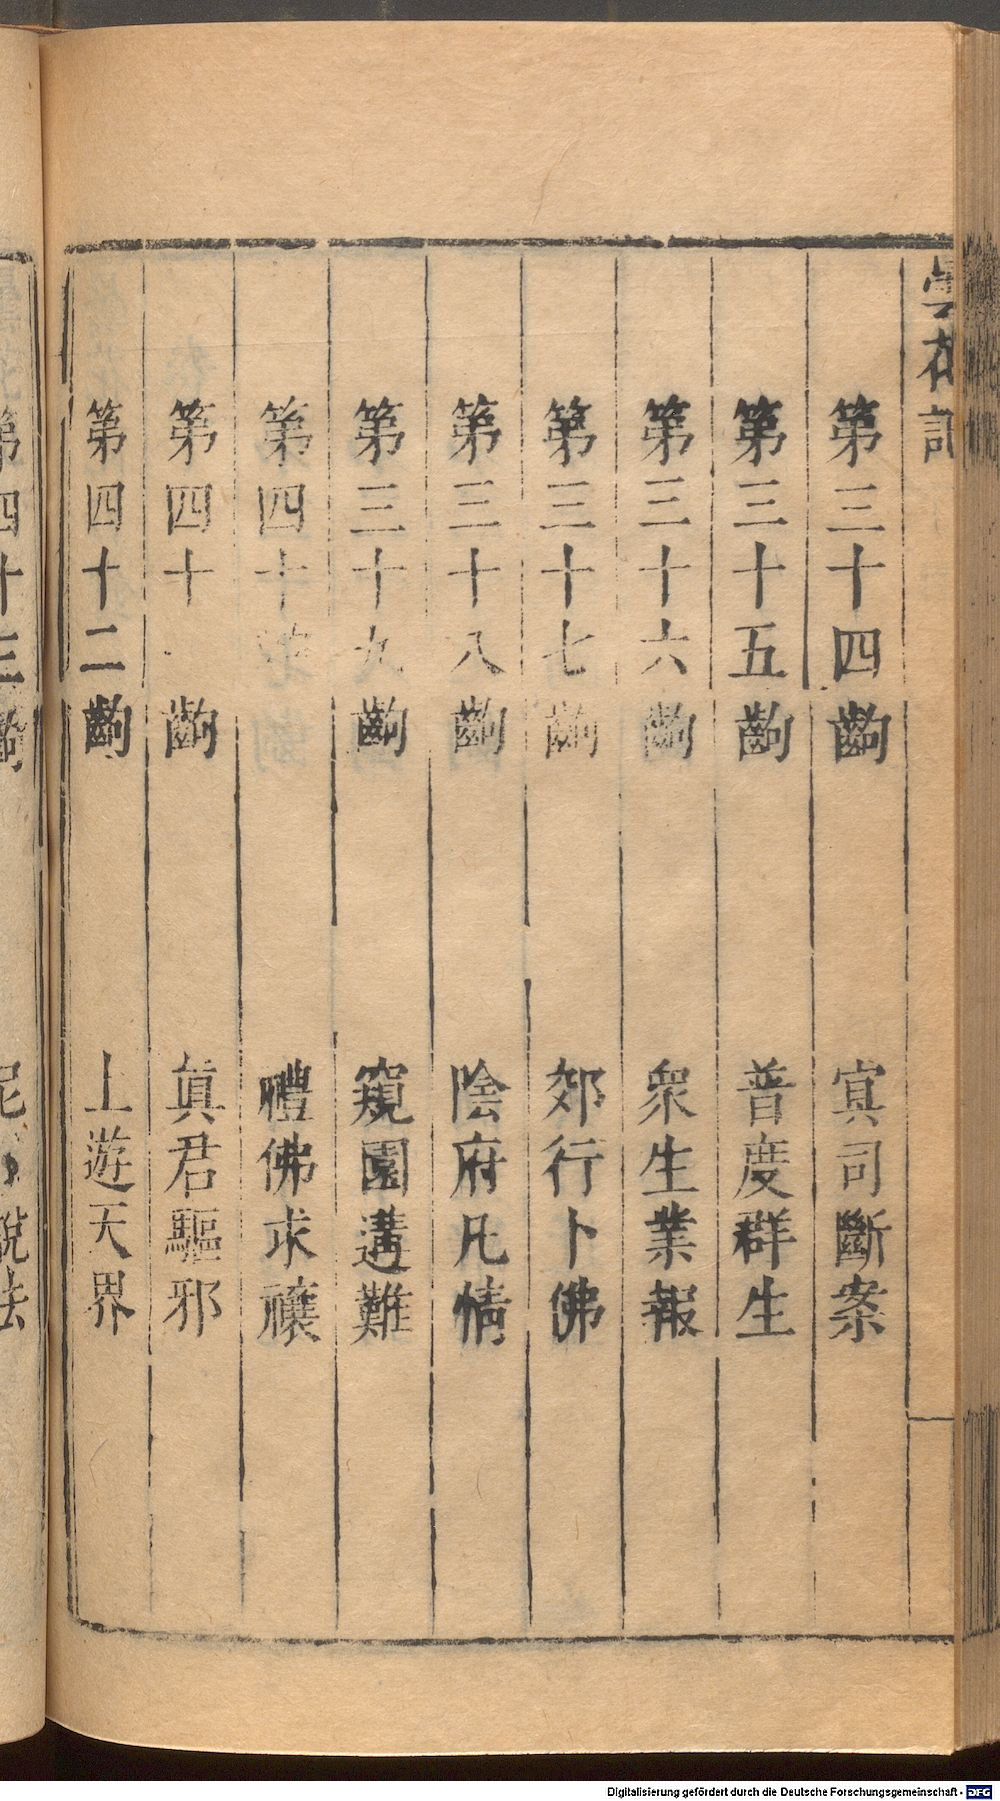 曇花記
第三十四齣　冥司斷案
第三十五齣　普度群生
第三十六齣　衆生業報
第三十七齣　郊行卜佛
第三十八齣　陰府凡情
第三十九齣　窺園遘難
第四十　禮佛求禳
第四十　齣　眞君驅邪
第四十二齣　上遊天界
第四十三齣　說法
Digitalisierung gefördert durch die Deutsche Forschungsgemeinschaft - DFG